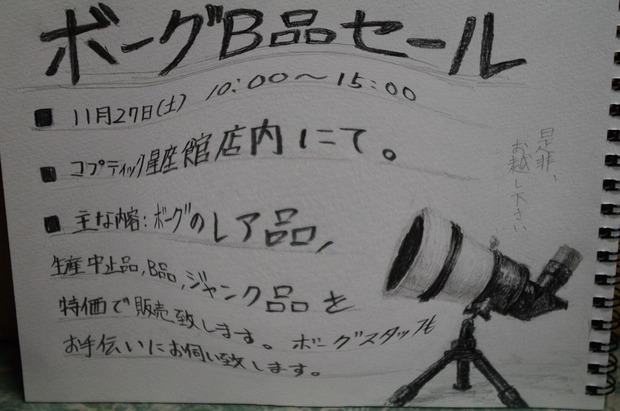 ボーグB品セール
■ 11月27日(土) 10:00～15:00
■ コプティック星座館店内にて。
■ 主な内容:ボーグのレア品,
生産中止品,B品,ジャンク品を
特価で販売致します。ボーグスタッフも
お手伝いにお伺い致します。
是非、
お越し下さい